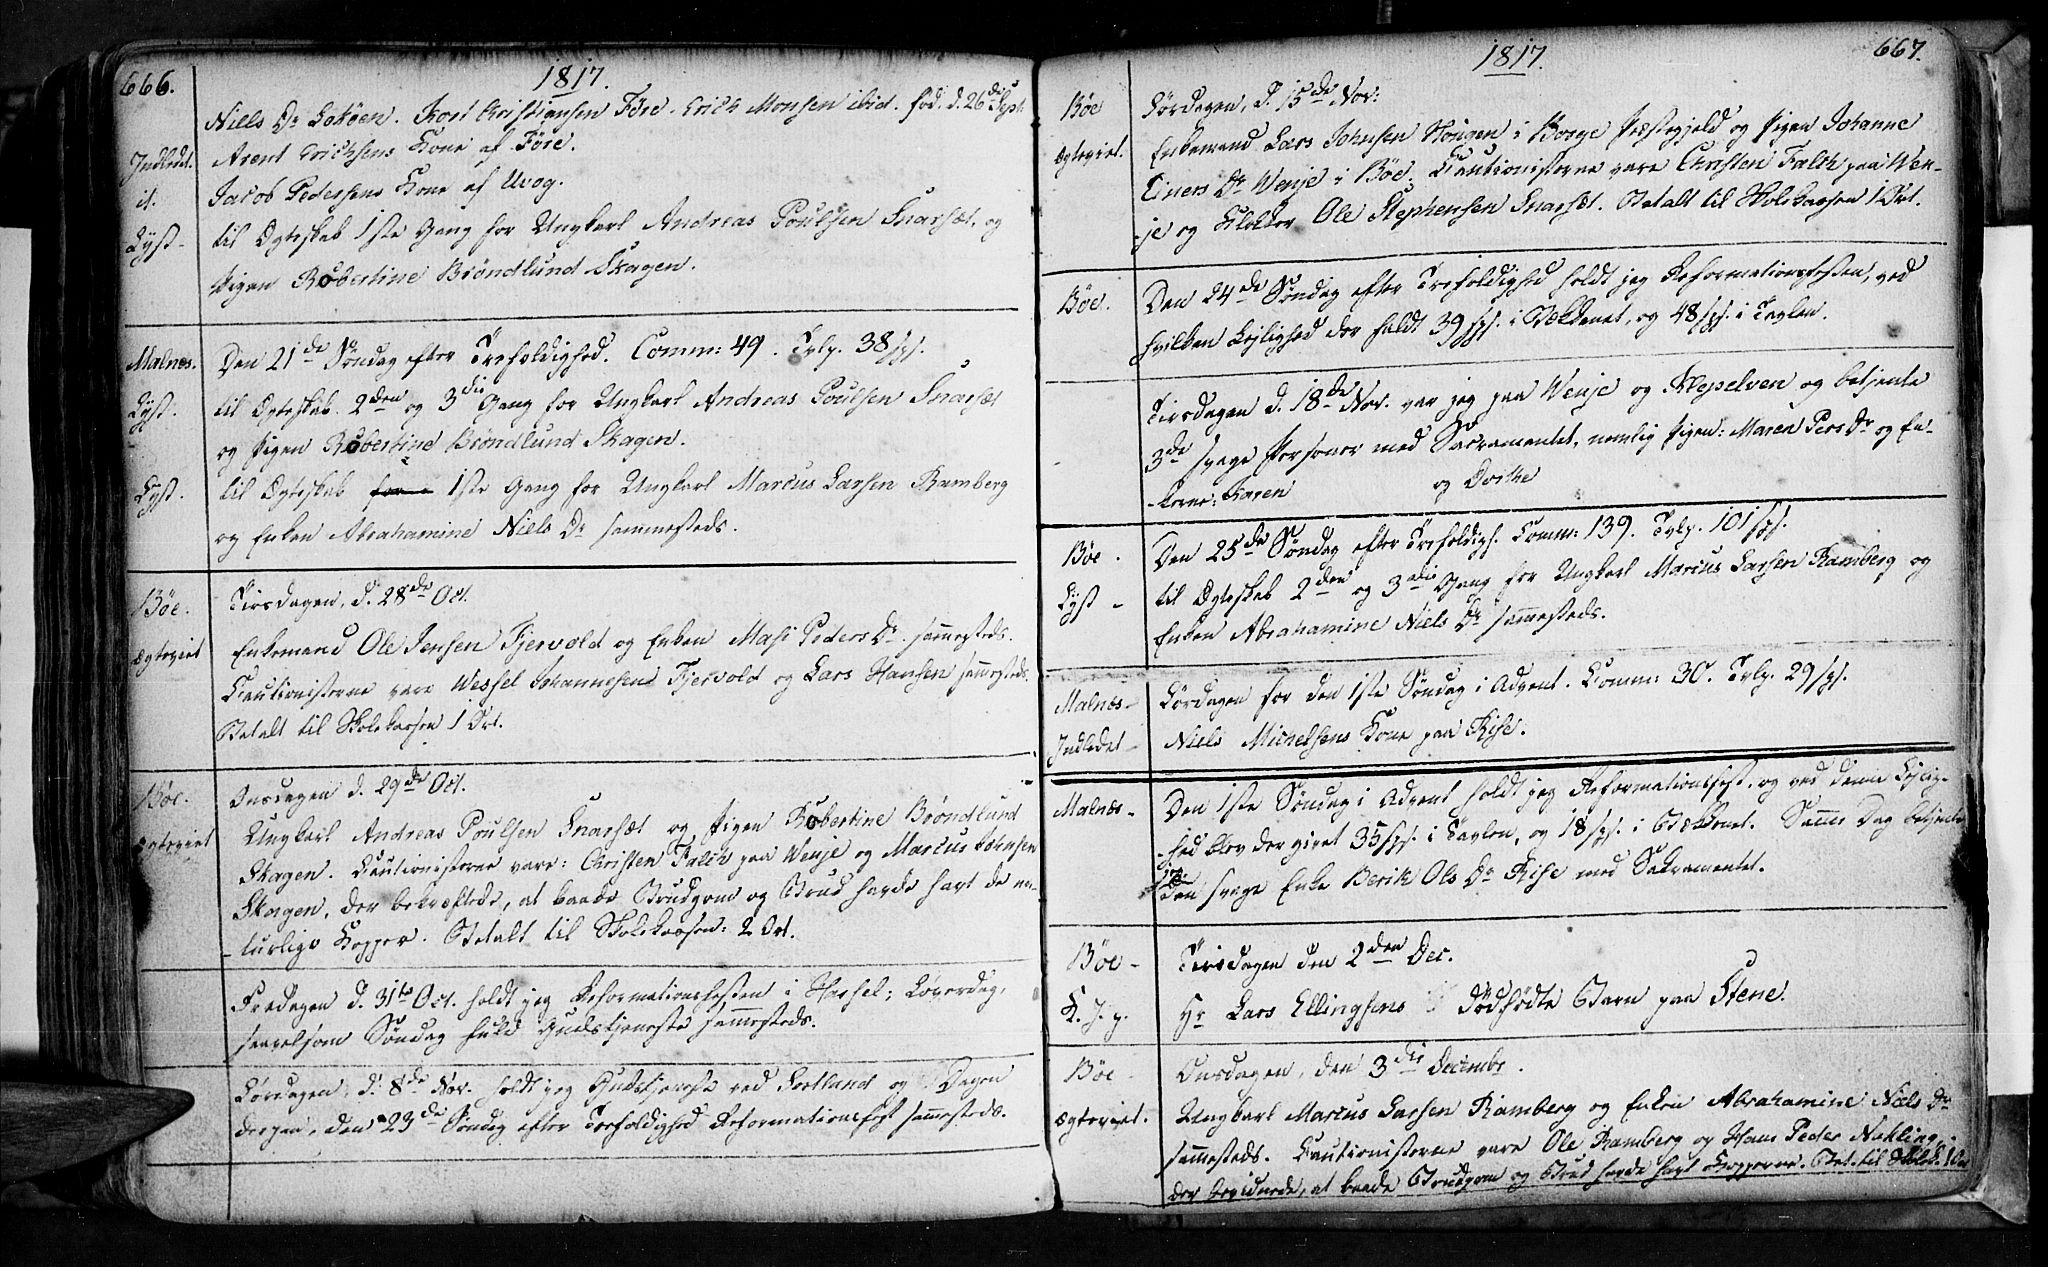 666.
1817.
Niels Dr Lokøen. Kort Christiansen Före. Erich Monsen ibid. föd. d. 26de Sept.
Indledet. Arent Erichsens Kone af Före.
it. Jacob Pedersens Kone af Uvog.
Lyst – til Ægteskab 1ste Gang for Ungkarl Andreas Poulsen Snarsæt, og
Pigen Robertine Bröndlund Skagen.
Malnæs. Den 21de Søndag efter Trefoldighed. Comm: 49. Tvlp. 38 sps.
Lyst. til Ægteskab 2den og 3die Gang for Ungkarl Andreas Poulsen Snarsæt
og Pigen Robertine Bröndlund Skagen.
Lyst. til Ægteskab for 1ste Gang for Ungkarl Marcus Larsen Ramberg
og Enken Abrahamine Niels Dr sammesteds.
Böe. Tirsdagen, d. 28de Oct.
Ægteviet Enkemand Ole Jensen Fjervold og Enken Masi Peders Dr. sammesteds.
Cautionisterne vare Wessel Johannesen Fjervold og Lars Hansen sammesteds.
Betalt til Skolekassen 1 Ort.
Böe. Onsdagen d. 29de Oct.
Ægteviet Ungkarl Andreas Poulsen Snarsæt og Pigen Robertine Bröndlund
Skagen. Cautionisterne vare: Christen Falch paa Wenje og Marcus Johnsen
Skagen, der bekræftede, at baade Brudgom og Brud havde havt de na-
turlige Kopper. Betalt til Skolekassen: 2 Ort.
Fredagen d. 31te Oct. holdt jeg Reformationsfesten i Hassel; Löverdag,
saavelsom Søndag holdt Gudstjeneste sammesteds.
Lördagen, d. 8de Nov. holdt jeg Gudstjeneste ved Sortland og Dagen
derpaa, den 23de Søndag efter Trefoldighed Reformationsfest sammesteds.
1817.
667.
Böe Lördagen, d. 15de Nov:
Ægteviet. Enkemand Lars Johnsen Hougen i Borge Præstegjeld og Pigen Johanne
Einers Dr Wenje i Böe. Cautionisterne vare Christen Falch paa Wen-
-je og Klokker Ole Stephensen Snarsæt. Betalt til Skolekassen 1 Ort.
Böe. Den 24de Søndag efter Trefoldighed holdt jeg Reformationsfesten, ved
hvilken Lejlighed der faldt 39 sps. i Bekkenet, og 48 sps. i Tavlen.
Tirsdagen d. 18de Nov. var jeg paa Wenje og Klepelven og betjente
3de syge Personer med Sacramentet, nemlig Pigen: Maren Pers Dr og En-
-kerne: Karen og Dorthe
Böe. Den 25de Søndag efter Trefoldigh. Comm: 139. Tvlp. 101 sps.
Lyst – til Ægteskab 2den og 3die Gang for Ungkarl Marcus Larsen Ramberg og
Enken Abrahamine Niels Dr sammesteds.
Malnæs – Lördagen for den 1ste Søndag i Advent. Comm: 30. Tvlp. 29 sps.
Indledet – Niels Michelsens Kone paa Rise.
Malnæs – Den 1ste Søndag i Advent holdt jeg Reformationsfest, og ved denne Lejlig-
-hed blev der givet 35 sps. i Tavlen, og 18 sps. i Bækkenet. Samme Dag betjente
jeg
den syge Enke Berik Ols Dr Rise med Sakramentet.
Böe – Tirsdagen den 2den Dec.
K. J. p. Hr Lars Ellingsens dödfödte Barn paa Stene.
Böe Onsdagen, den 3die Decembr.
Ægteviet. Ungkarl Marcus Larsen Ramberg og Enken Abrahamine Niels Dr
sammesteds. Cautionisterne vare Ole Ramberg og Hans Peder Nykling,
der bevidnede, at baade Brudgom og Brud havde havt Kopperne. Bet. til Skolek. 1 Ort